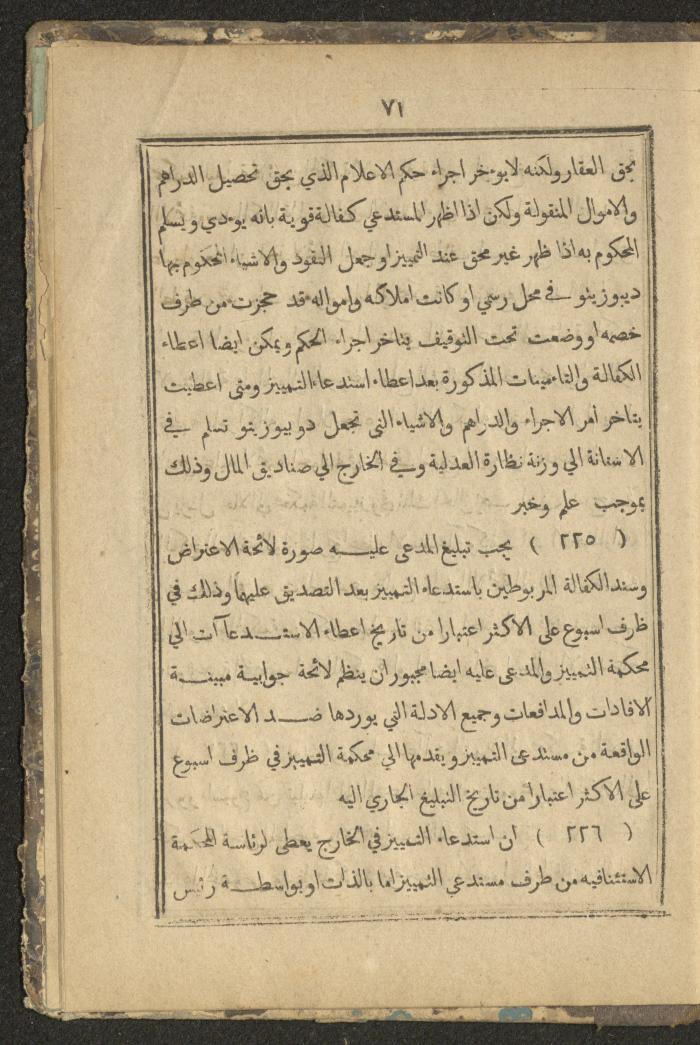 ٧١
بحق العقار ولكنه لايوءخر اجراء حكم الاعلام الذي بحق تحصيل الدراهم
والاموال المنقولة ولكن اذا اظهر المستدعي كفالة قوية بانه يوءدي ويسلم
المحكوم به اذا ظهر غير محق عند التمييز او جعل النقود والاشياء المحكوم بها
ديبوزيتو في محل رسمي او كانت املاكه وامواله قد حجزت من طرف
خصمه او وضعت تحت التوقيف يتاخر اجراء الحكم ويمكن ايضا اعطاء
الكفالة والتاءمينات المذكورة بعد اعطاء استدعاء التمييز ومتى اعطيت
يتاخر امر الاجراء والدراهم والاشياء التى تجعل دوبيوزيتو تسلم في
الاستانة الي وزنة نظارة العدلية وفي الخارج الي صناديق المال وذلك
بموجب علم وخبر
( ٢٢٥ ) يجب تبليغ المدعى عليه صورة لائحة الاعتراض
وسند الكفالة المربوطين باستدعاء التمييز بعد التصديق عليهما وذلك في
ظرف اسبوع على الاكثر اعتبارا من تاريخ اعطاء الاستدعاآت الي
محكمة التمييز والمدعى عليه ايضا مجبور ان ينظم لائحة جوابية مبينة
الافادات والمدافعات وجميع الادلة التي يوردها ضد الاعتراضات
الواقعة من مستدعى التمييز ويقدمها الي محكمة التمييز في ظرف اسبوع
على الاكثر اعتبارا من تاريخ التبليغ الجاري اليه
( ٢٢٦ ) ان استدعاء التمييز في الخارج يعطى لرئاسة المحكمة
الاستئنافيه من طرف مستدعي التمييز اما بالذات او بواسطة رئيس